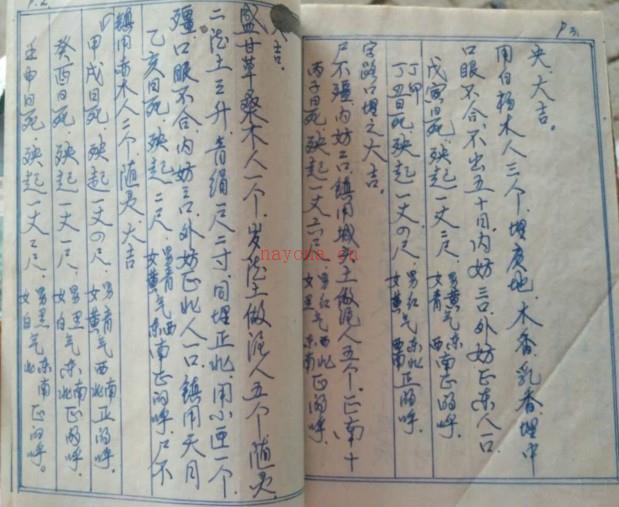 P.2
壬申日死 殃起一丈二尺 男黑女白气东南北正的呼。
癸酉日死 殃起一丈一尺 男黑女白气东南北正的呼。
甲戌日死 殃起一丈四尺 男青女黄气西南北正的呼
镇用 木人三个随灵大吉
乙亥日死 殃起二尺 男青女黄气西东南正的呼尸不
疆口眼不合内妨三口外妨正北人一口镇用天月
二德土三升 青绢二尺二寸 同埋正北用小匣一个
盛甘草桑木人一个岁德土做泥人五个随灵
大吉。
P3
丙子日死 殃起一丈六 男红女黑气西北东南的呼。
尸不疆内妨二口镇用城上土做泥人五个正南十
字路口埋之大吉。
丁丑日死 殃起一丈四尺 男红女黄气东北西南正的呼。
甲
戊寅日死 殃起一丈二尺 男黄女青气西南东正的呼
口眼不合。不出五十日内妨三口外妨正东人一口
用白杨木人三个埋 地 木香、乳香埋中
央、大吉。
nayona.cn